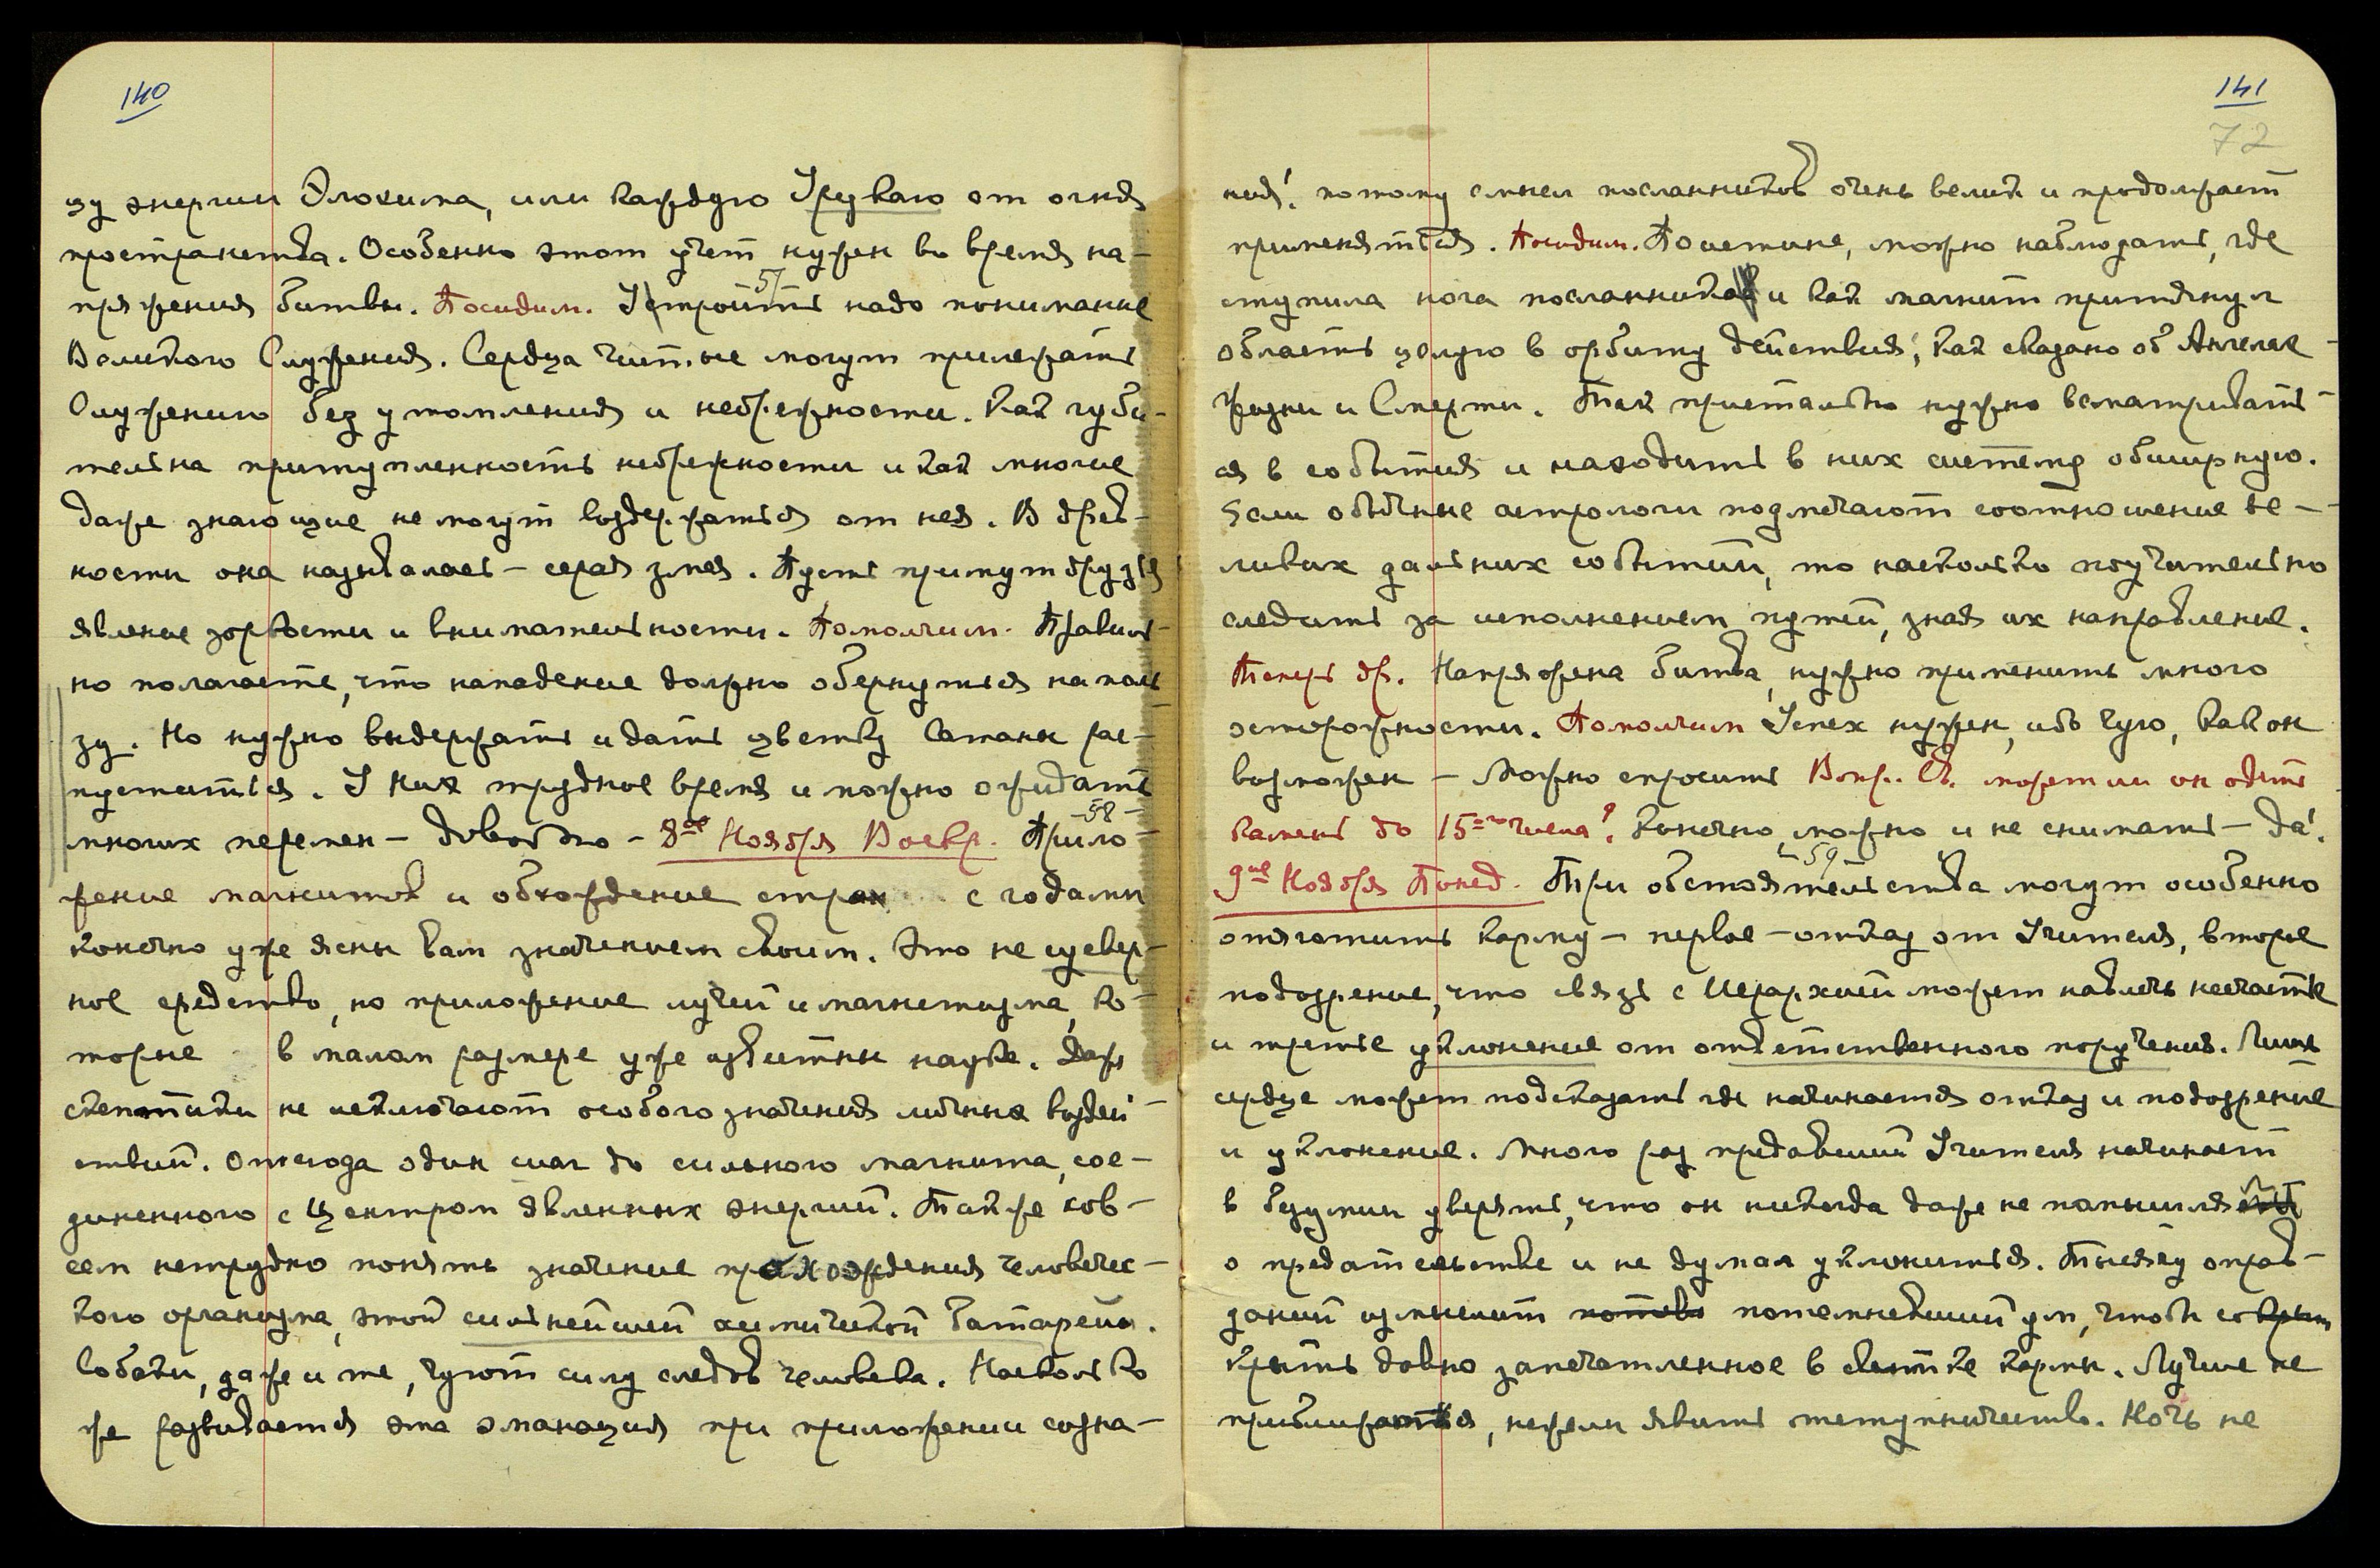 140
зу энергии Элохима, или каждую Уруваю от огня
пространства. Особенно этот учет нужен во время на-
пряжения битвы. Посидим. Устроить надо понимание
57
Великого Служения. Сердца чистые могут прилежать
Служению без утомления и небрежности. Как губи-
тельна притупленность небрежности и как многие
даже знающие не могут воздержаться от нея. В древ-
ности она называлась – серая змея. Пусть примут друзья
явление зоркости и внимательности. Помолчим. Правиль-
но полагаете, что нападение должно обернуться на поль-
зу. Но нужно выдержать и дать цветку Сатаны рас-
пуститься. У них трудное время и можно ожидать
многих перемен – довольно – 8ое Ноября Воскр. Прило-
58
жение магнитов и обхождение стран с годами
конечно уже ясны вам значением своим. Это не суевер-
ное средство, но приложение лучей и магнетизма, ко-
торые в малом размере уже известны науке. Даже
скептики не исключают особого значения личных воздей-
ствий. Отсюда один шаг до сильного магнита, сое-
диненного с Центром явленных энергий. Также сов-
сем нетрудно понять значение прохождения человечес-
кого организма, этой сильнейшей химической батареи.
Собаки, даже и те, чуют силу следов человека. Насколько
же развивается эта эманация при приложении созна-
141
72
ния! потому смысл посланников очень велик и продолжает
применяться. Посидим. Поистине, можно наблюдать, где
ступила нога посланника и как магнит притянул
область целую в орбиту действия; как сказано об Ангелах
Жизни и Смерти. Так пристально нужно всматривать-
ся в события и находить в них систему обширную.
Если обычные астрологи подмечают соотношение ве-
ликих дальних событий, то насколько поучительно
следить за исполнением путей, зная их направление.
Теперь др. Напряжена битва, нужно применить много
осторожности. Помолчим Успех нужен, ибо чую, как он
возможен – Можно спросить Вопр. Св. может ли он одеть
камень до 15-го числа? Конечно, можно и не снимать – да!
9ое Ноября Понед. Три обстоятельства могут особенно
59
отяготить карму – первое – отказ от Учителя, второе
подозрение, что связь с Иерархией может навлечь несчастье
и третье уклонение от ответственного поручения. Лишь
сердце может подсказать где начинается отказ и подозрение
и уклонение. Много раз предавший Учителя начинает
в безумии уверять, что он никогда даже не помышлял
о предательстве и не думал уклониться. Тысячу оправ-
даний измыслит потемневший ум, чтобы со
крыть давно запечатленное в свитке кармы. Лучше не
приближаться, нежели явить отступничество. Ночь не